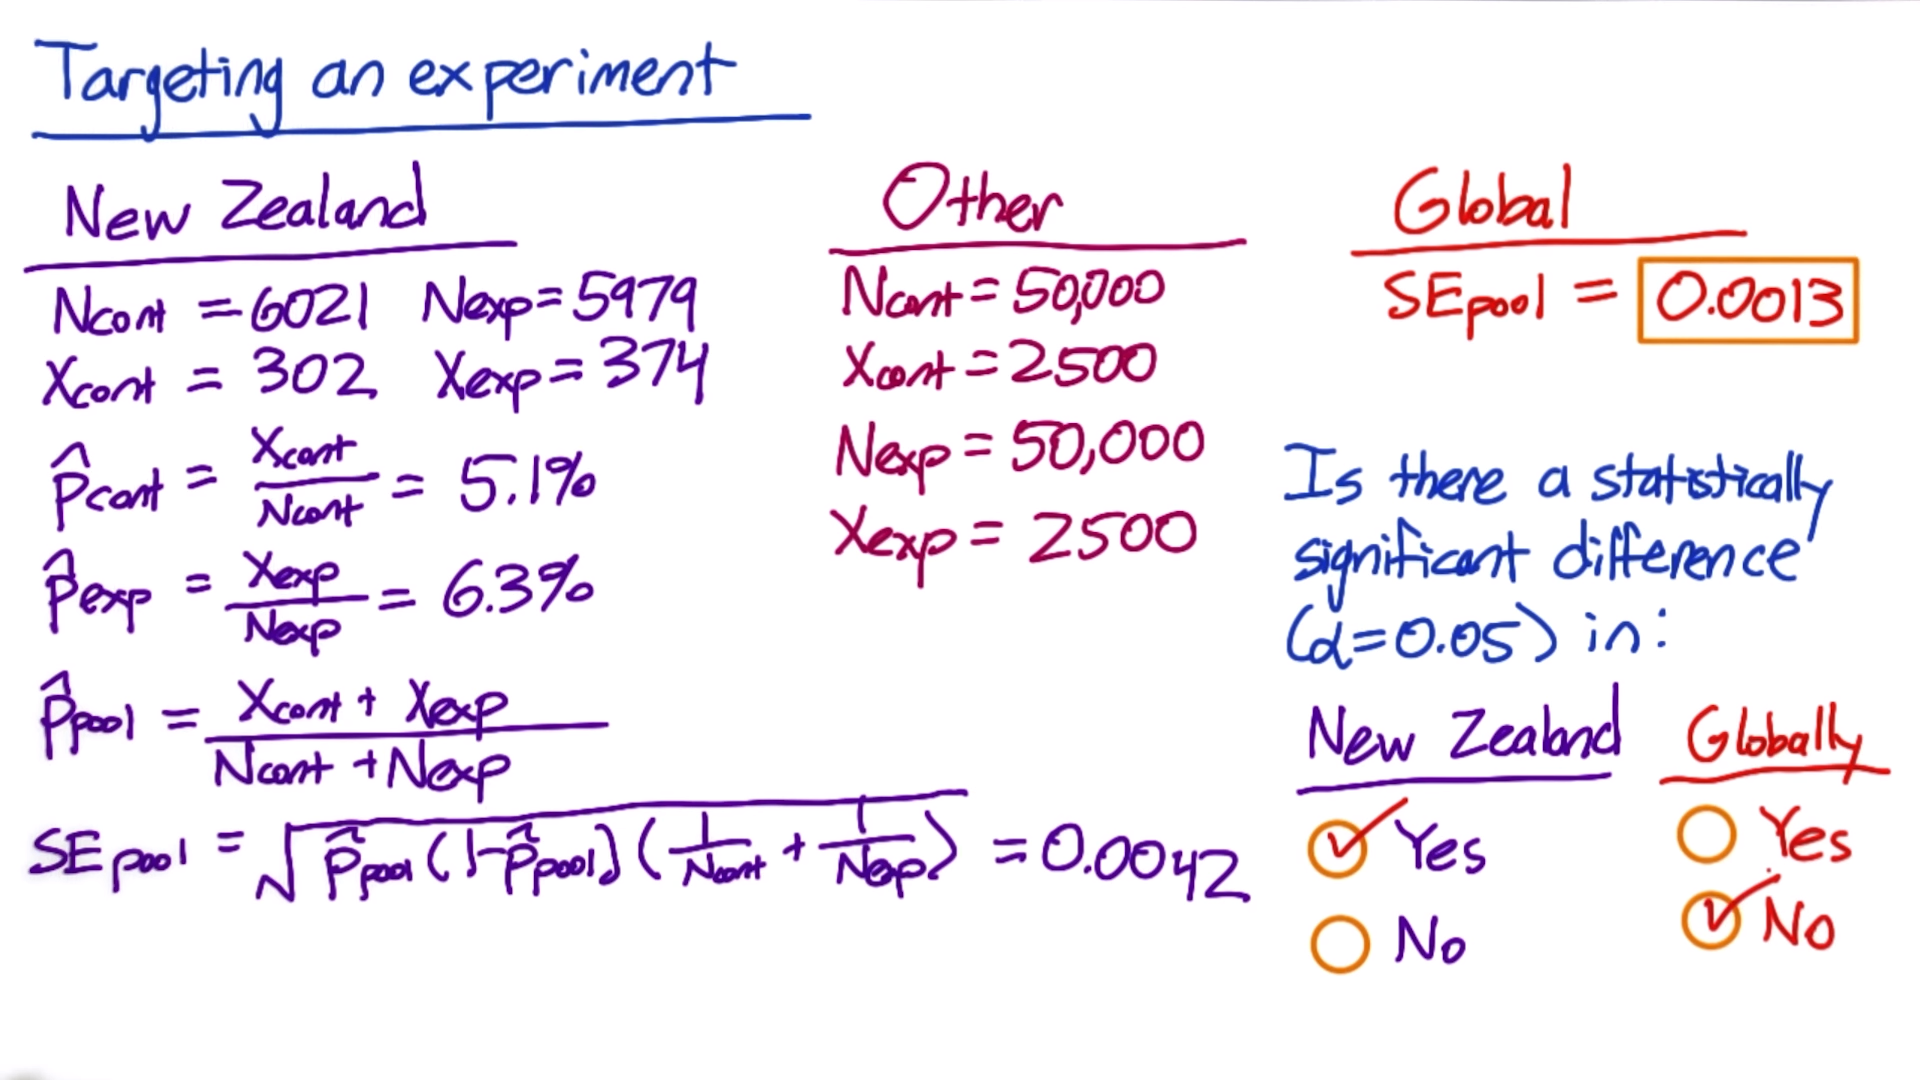 Targeting an experiment
New Zealand
Ncont = 6021 Nexp = 5979
Xcont = 302 Xexp = 374
p̂cont = Xcont / Ncont = 5.1%
p̂exp = Xexp / Nexp = 6.3%
p̂pool = Xcont + Xexp / Ncont + Nexp
SEpool = √ p̂pool (1-p̂pool) (1/Ncont + 1/Nexp) = 0.0042
Other
Ncont = 50,000
Xcont = 2500
Nexp = 50,000
Xexp = 2500
Global
SEpool = 0.0013
Is there a statistically
significant difference
(α=0.05) in:
New Zealand
✓ Yes
No
Globally
Yes
✓ No